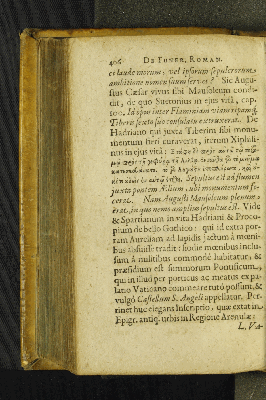 406 DE FUNER. ROMAN.
et laude morum, vel ipsorum sepulcrorum
ambitione nomen suum servet? Sic Augu-
stus Cæsar vivus sibi Mausoleum condi-
dit, de quo Suetonius in ejus vitâ, cap.
100. Id opus inter Flaminiam viam ripamq;
Tiberis sexto suo consulatu extruxerat. De
Hadriano qui juxta Tiberim sibi monu-
mentum fieri curaverat, iterum Xiphili-
nus in ejus vitâ:
Sepultus est ad flumen
juxta pontem Ælium, ubi monumentum fe-
cerat. Nam Augusti Mausoleum plenum
erat, in quo nemo amplius sepultus est. Vide
& Spartianum in vita Hadriani & Proco-
pium de bello Gothico: qui ad extra por-
tam Aureliam ad lapidis jactum à mœni-
bus abfuisse tradit: hodie mœnibus inclu-
sum à militibus commodè habitatur, &
præsidium est summorum Pontificum,
qui in illud per porticus ac meatus ex pa-
latio Vaticano commeare tutò possunt, &
vulgò Castellum S. Angeli appellatur. Per-
tinet huc elegans Inscriptio, quæ extat in
Epigr. antiq. urbis in Regione Arenulæ:
L. Va-